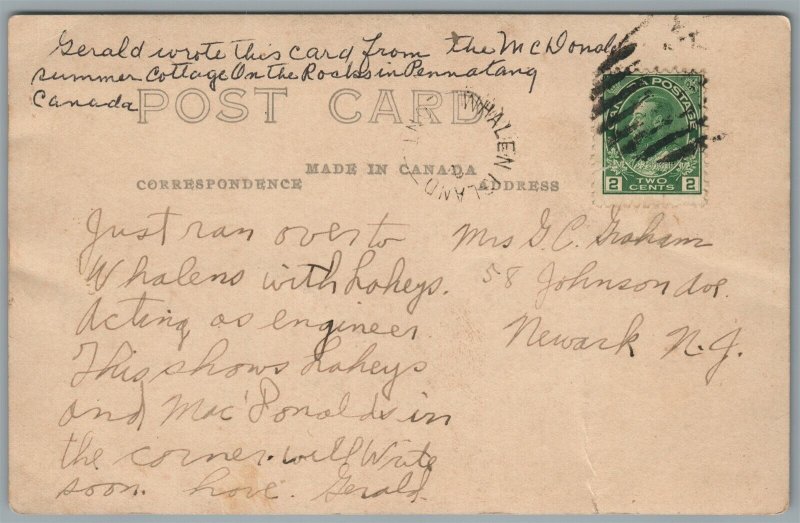 Gerald wrote this card from the McDonald
summer cottage On the Rocks in Pennatang
Canada
POST CARD
WHALEN ISLAND
MADE IN CANADA
CORRESPONDENCE
ADDRESS
POSTAGE
2 TWO CENTS 2
Just ran over to
Whalens with Laheys.
Acting as engineer
This shows Laheys
and Mac'Donalds in
the corner. will Write
soon. Love. Gerald.
Mrs G. C. Graham
58 Johnson Ave.
Newark N. J.